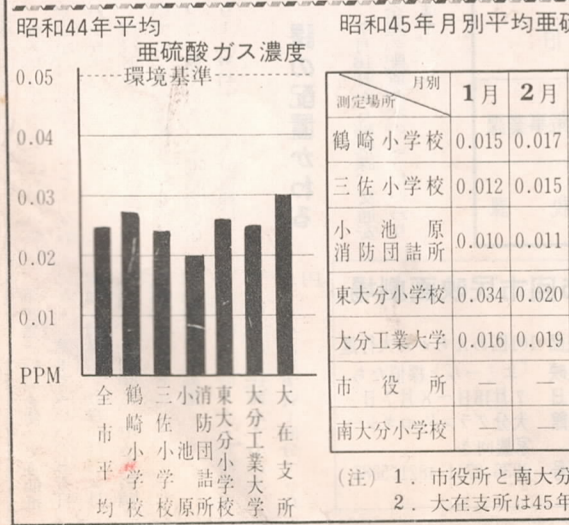 昭和44年平均
亜硫酸ガス濃度
0.05
環境基準
0.04
0.03
0.02
0.01
PPM
全市平均
鶴崎小学校
三佐小学校
小池原
消防団詰所
東大分小学校
大分工業大学
大在支所
昭和45年月別平均亜硫
月別
測定場所
1月 2月
鶴崎小学校 0.015 0.017
三佐小学校 0.012 0.015
小池原
消防団詰所 0.010 0.011
東大分小学校 0.034 0.020
大分工業大学 0.016 0.019
市役所 — —
南大分小学校 — —
(注) 1. 市役所と南大分
2. 大在支所は45年